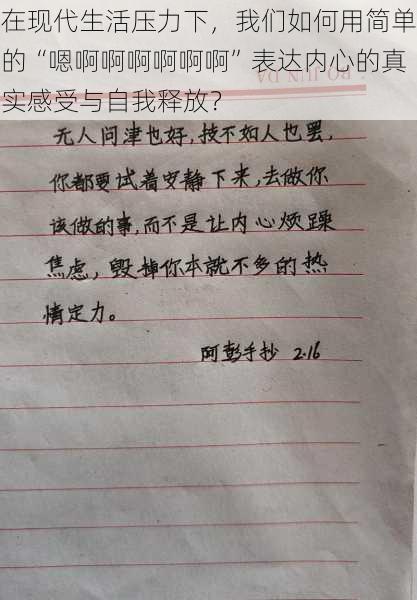 在现代生活压力下，我们如何用简单
的“嗯啊啊啊啊啊啊”表达内心的真
实感受与自我释放？
BO JUN DA
无人问津也好,技不如人也罢,
你都要试着安静下来,去做你
该做的事,而不是让内心烦躁
焦虑，毁掉你本就不多的热
情定力。
阿彭手抄 2.16